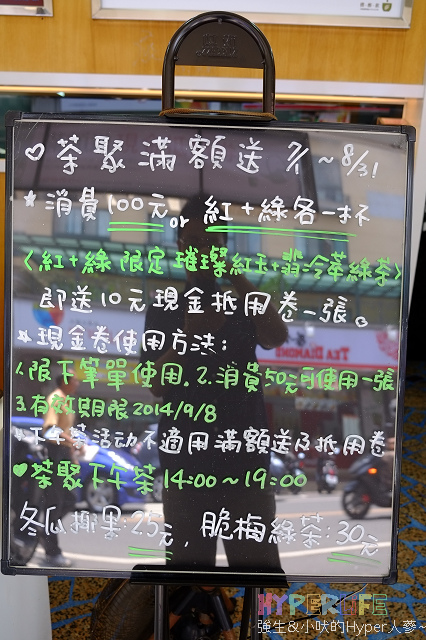 ♡茶聚滿額送 7/1~8/31
★消費100元or 紅+綠各一杯
<紅+綠 限定 璀璨紅玉+翡冷萃綠茶>
即送10元現金抵用卷一張。
★現金卷使用方法:
1.限下筆單使用.2.消費50元可使用一張
3.有效期限2014/9/8
4.下午茶活动不適用滿額送及抵用卷
♥茶聚下午茶14:00~19:00
冬瓜椰果:25元,脆梅綠茶:30元
TEA DIAMOND
HYPERLIFE
強生&小吠的Hyper人蔘~